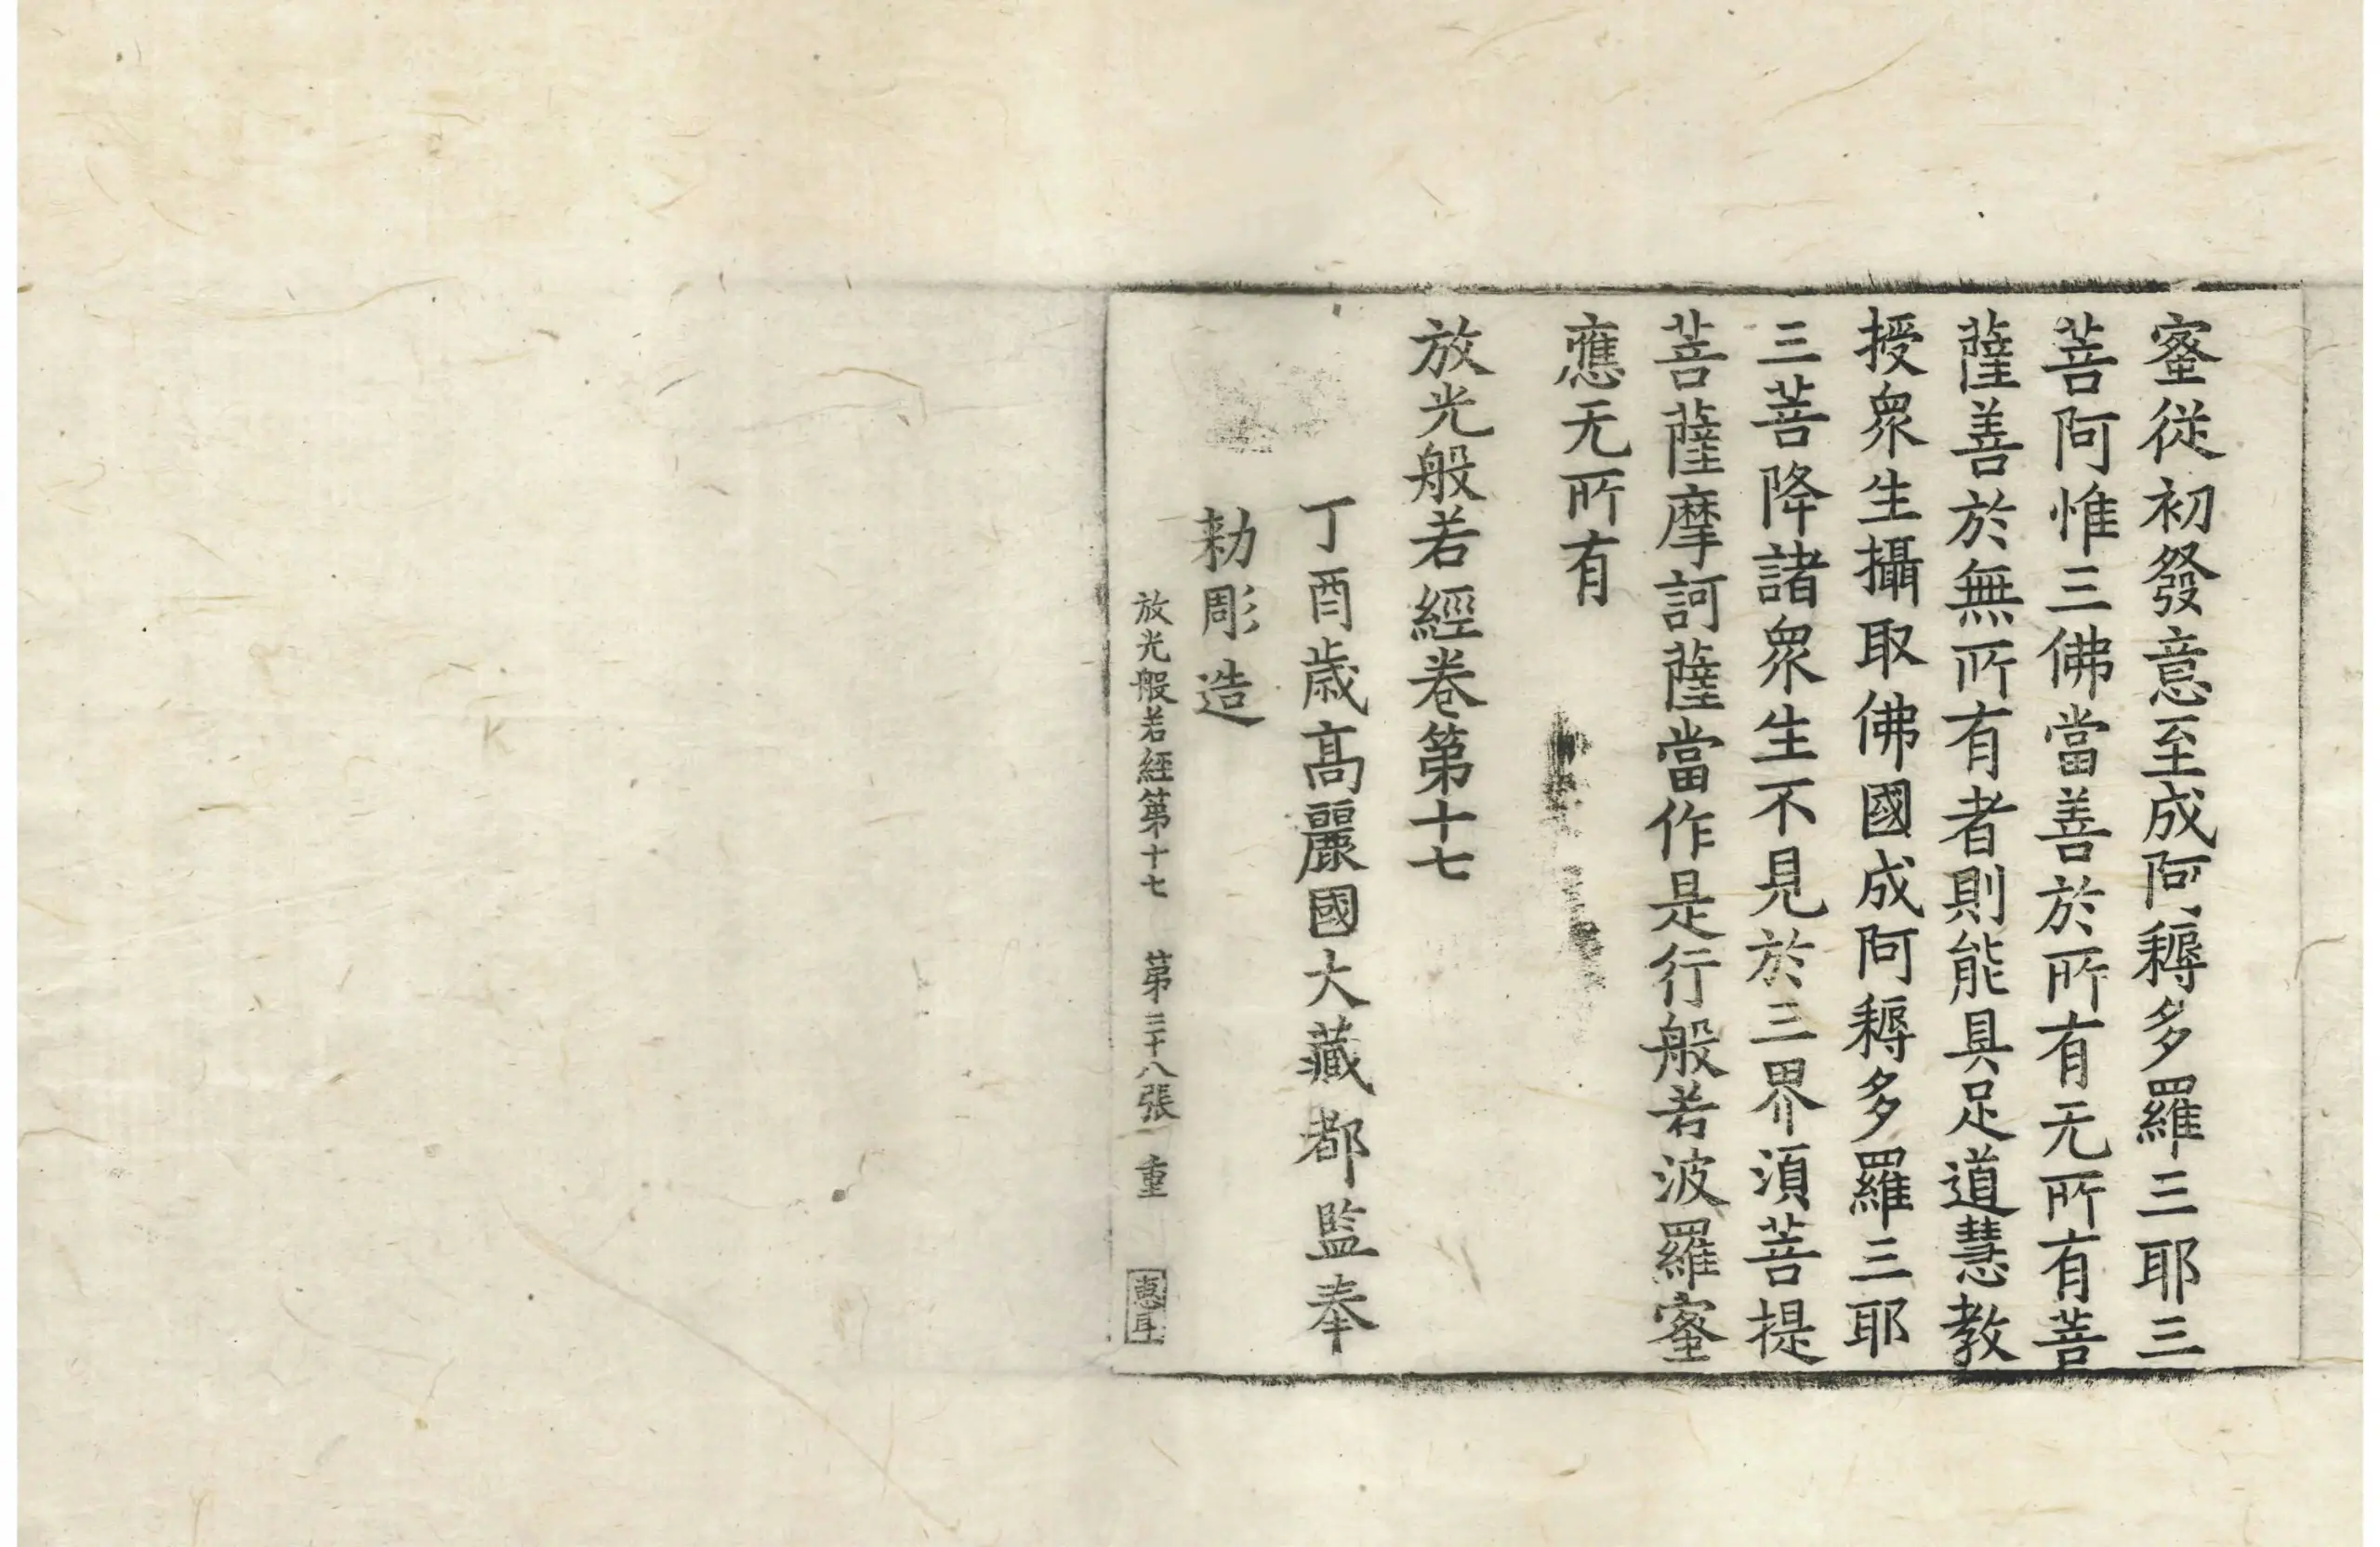 蜜從初發意至成阿耨多羅三耶三
菩阿惟三佛當善於所有无所有菩
薩善於無所有者則能具足道慧教
授衆生攝取佛國成阿耨多羅三耶
三菩降諸衆生不見於三界須菩提
菩薩摩訶薩當作是行般若波羅蜜
應无所有
放光般若經卷第十七
丁酉歲高麗國大藏都監奉
勅彫造
放光般若經第十七 第三十八張 重